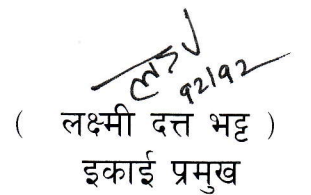 १२/१२
( लक्ष्मी दत्त भट्ट )
इकाई प्रमुख